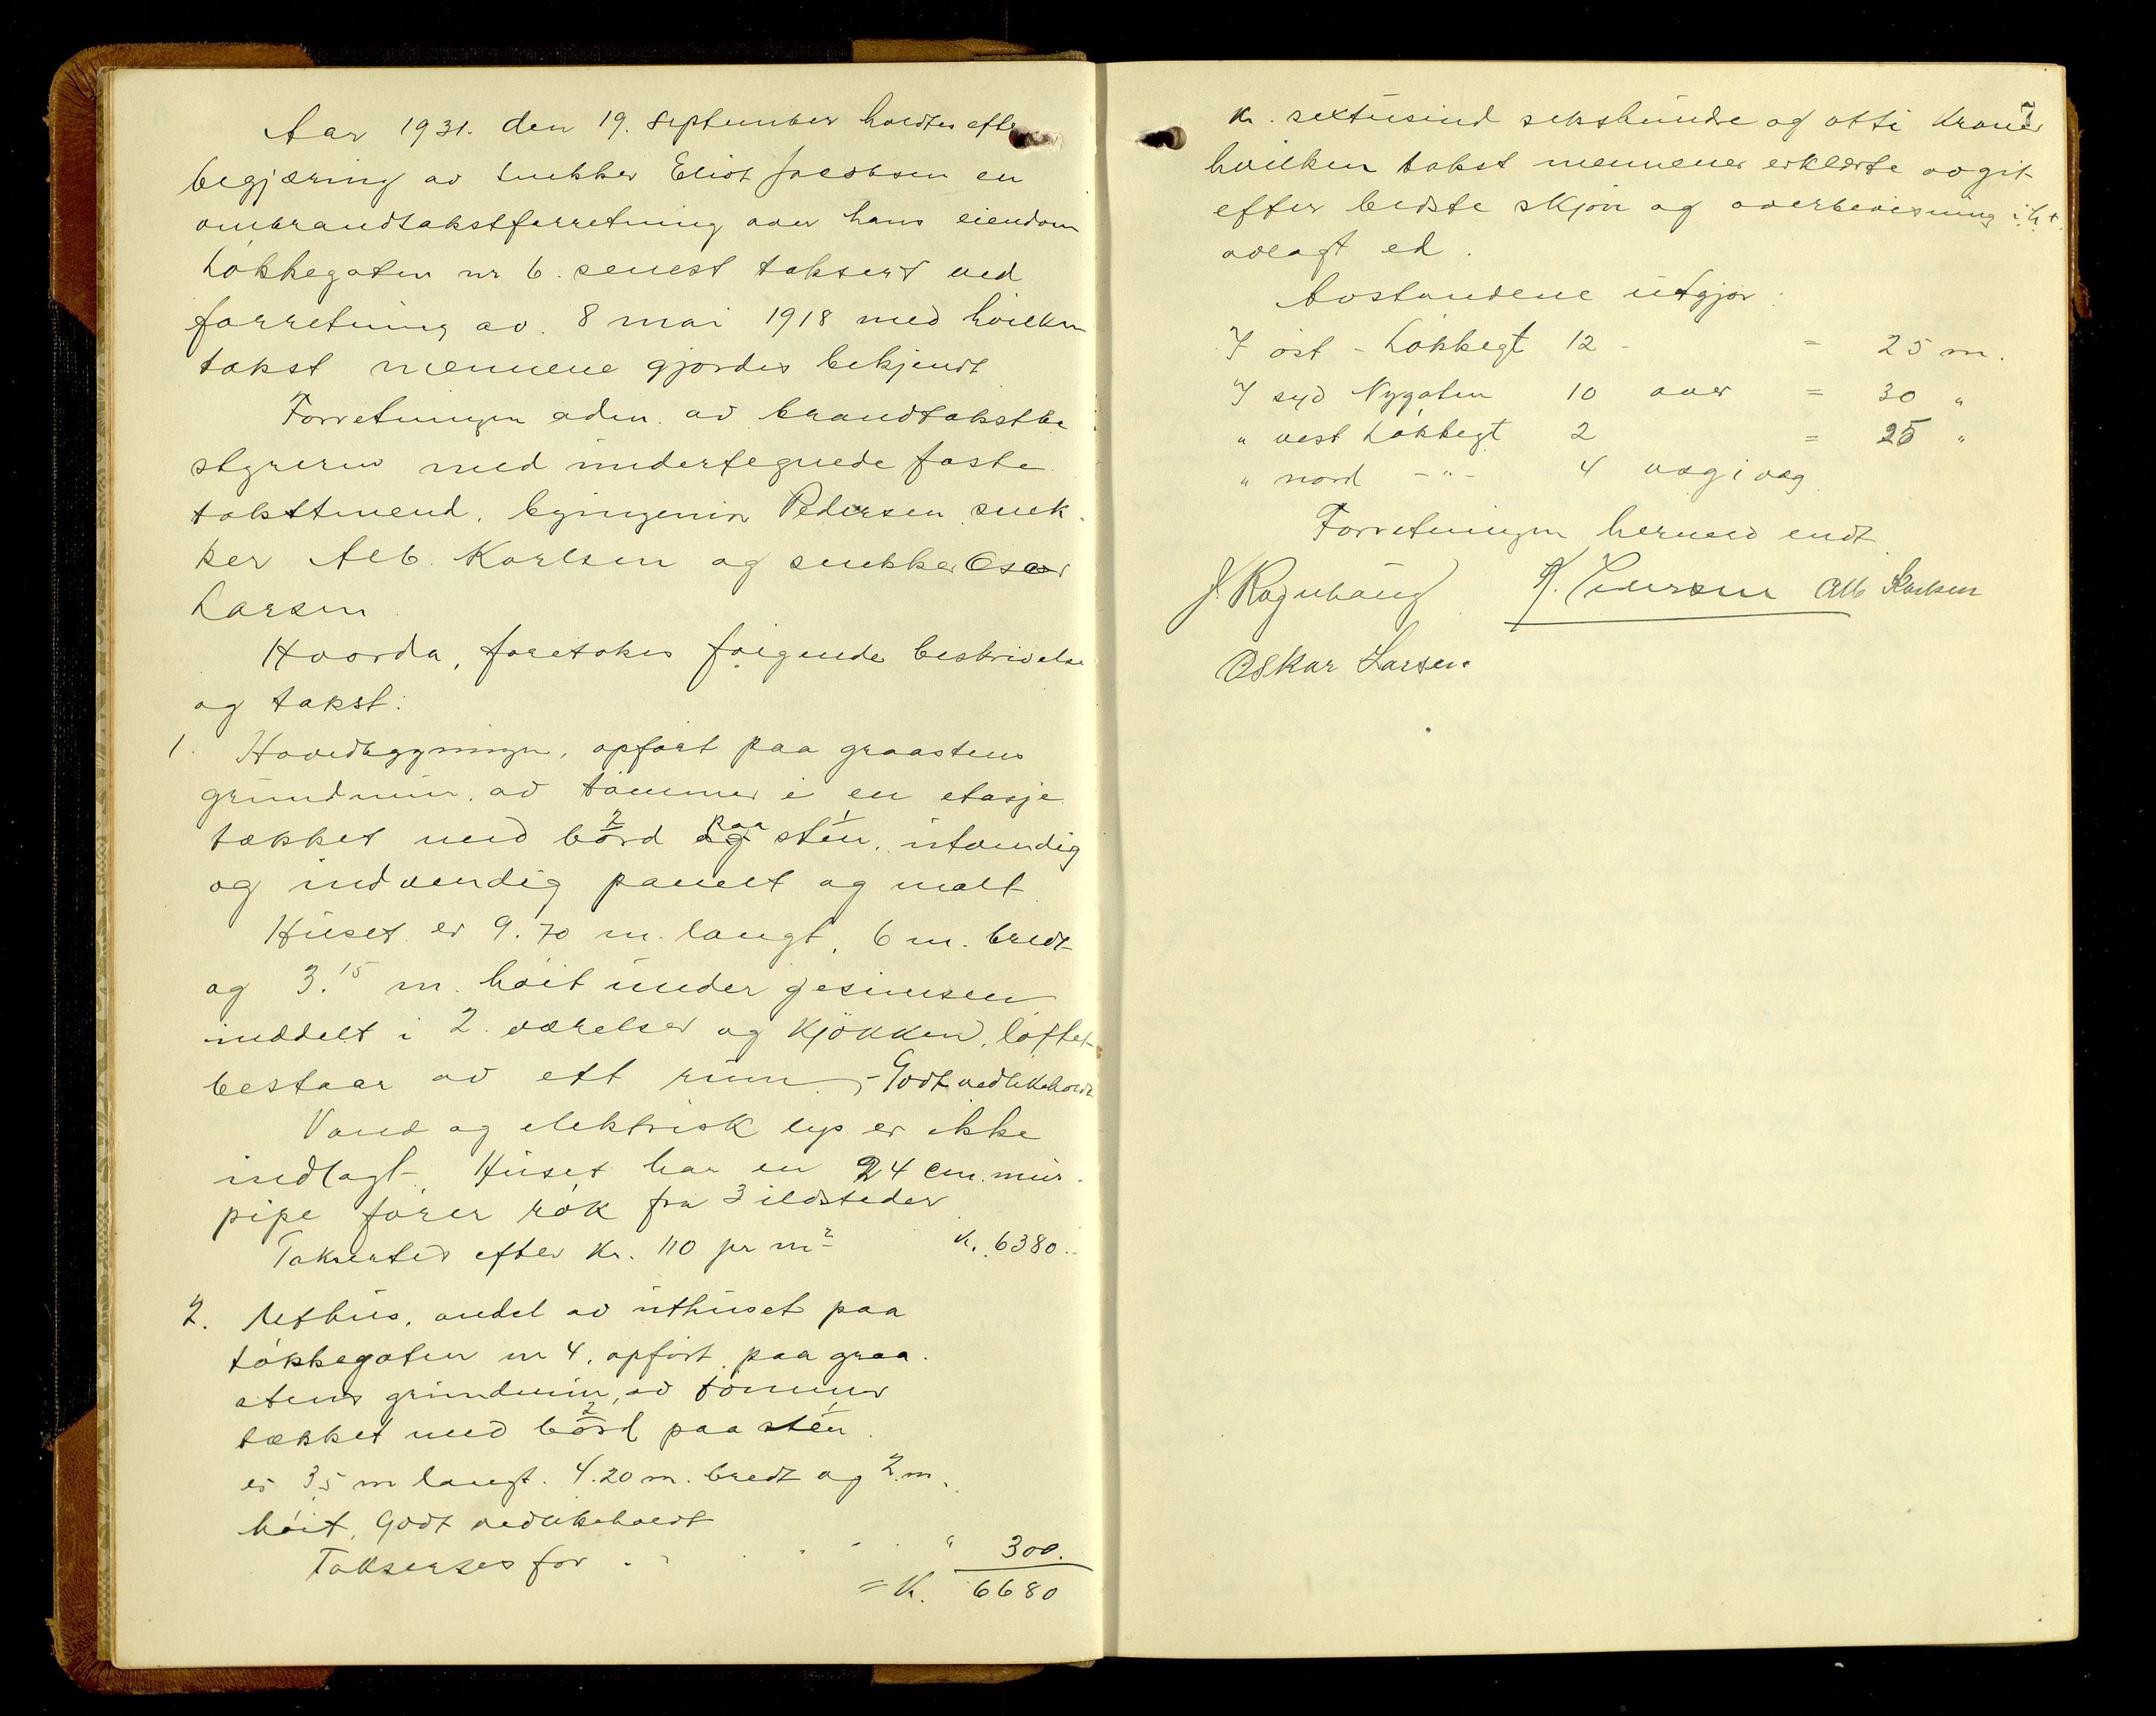 Aar 1931. den 19. September holdtes efter
begjæring av snekker Eliot Jacobsen en
ombrandtakstforretning over hans eiendom
Løkkegaten nr 6. senest taksert ved
forretning av 8 mai 1918 med hvilken
takst mennene gjordes bekjendt
Forretningen adm. av brandtakstbe
styreren med undertegnede faste
takstmend, bying­eniør Pedersen snek-
ker Alb. Karlsen og snekker Oscar
Larsen
Hvorda, foretokes følgende beskrivelse
og takst:
1. Hovedbygningen, opført paa graastens
grundmur. av tømmer i en etasje
tækket med 2 børd paa 1 sten, utvendig
og indvendig panelt og malt
Huset er 9.70 m. langt, 6 m. bredt
og 3.15 m. høit under gesimsen
inddelt i 2 værelser og kjøkken, loftet
bestaar av ett rum - Godt vedlikeholdt
Vand og elektrisk lys er ikke
indlagt. Huset har en 24 cm. mur-
pipe fører røk fra 3 ildsteder
Taksertes efter Kr. 110 pr m² Kr. 6380.-
2. Uthus, andel av uthuset paa
Løkkegaten nr 4, opført paa graa-
stens grundmur, av tømmer
tækket med 2 børd paa 1 sten.
er 3,5 m langt. 4.20 m. bredt og 2 m.
høit, Godt vedlikeholdt
Takseres for - - - - " 300.
= Kr. 6680
7
Kr. sextusind sekshundre og otti Kroner
hvilken takst mennener erklærte avgit
efter bedste skjøn og overbevisning i h. t.
avlagt ed.
Avstandene utgjør:
I øst - Løkkegt 12 - = 25 m.
I syd Nygaten 10 over = 30 "
" vest Løkkegt 2 = 25 "
" nord - " - 4 væg i væg
Forretningen hermed endt
J. Ragnhaug K. Pedersen Alb Karlsen
Oskar Larsen.